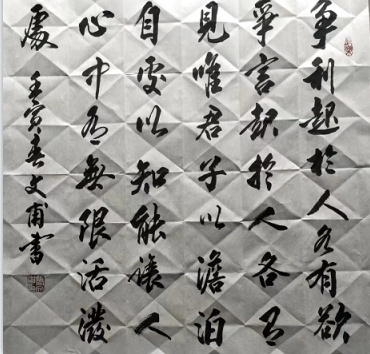 争利起於人各有欲
爭言起於人各有
見唯君子以澹泊
自處以知能讓人
心中有無限活潑
處 壬寅春文甫書